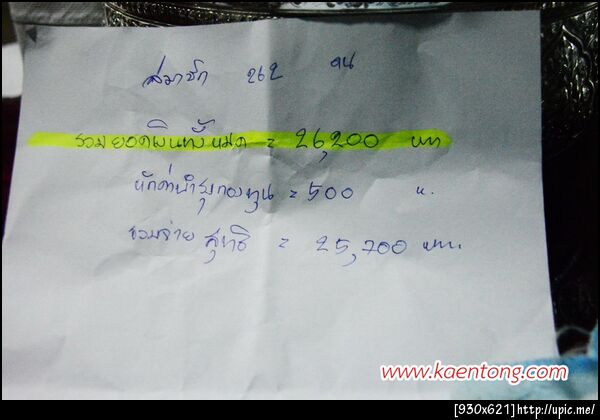 สมาชิก 262 คน
รวมยอดเงินทั้งหมด = 26,200 บาท
หักค่าบำรุงกองทุน = 500 บ.
รวมจ่ายสุทธิ = 25,700 บาท.
www.kaentong.com
[930x621]http://upic.me/